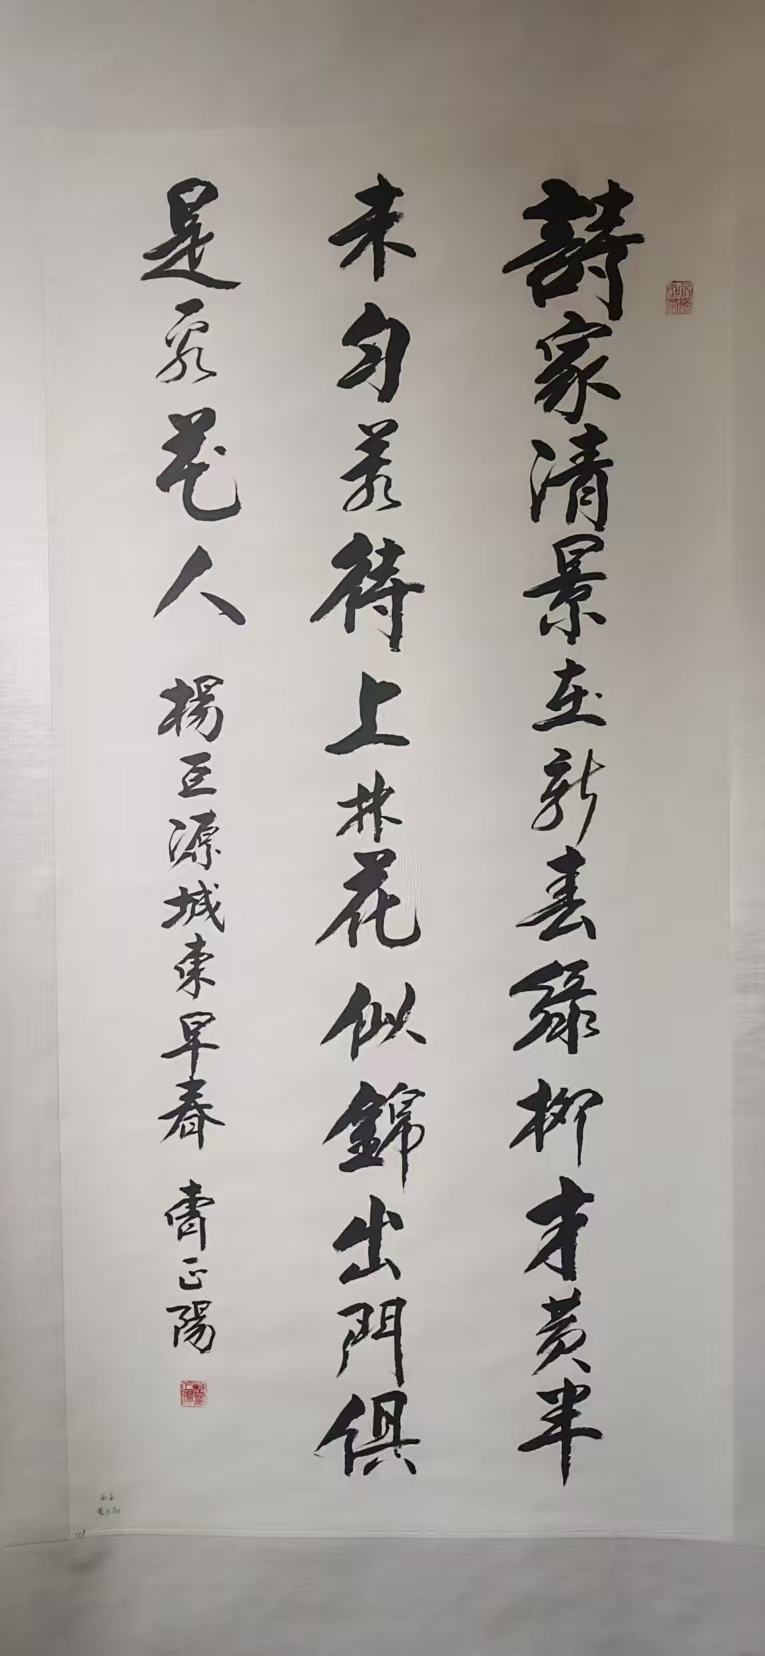 詩家清景在新春綠柳才黃半
未勻若待上林花似錦出門俱
是看花人 楊巨源城東早春 正陽